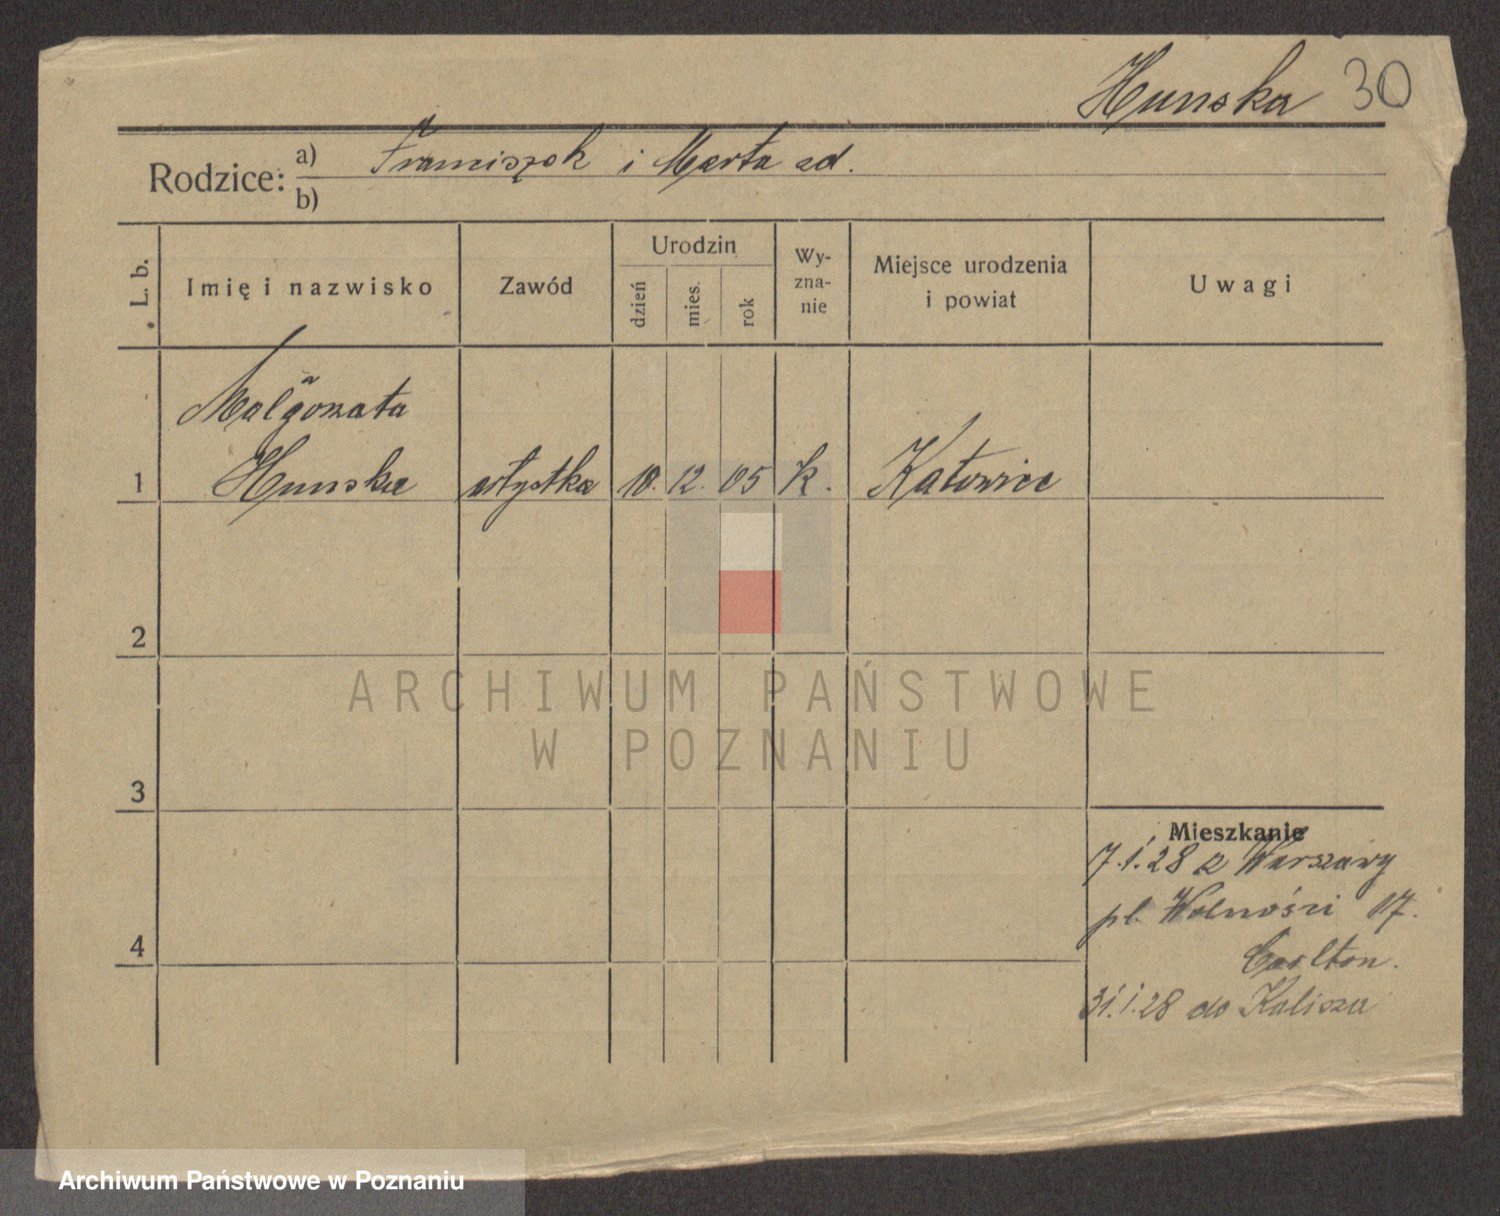 Hunska 30
Rodzice: a) Franciszek i Marta ad.
b)
L. b. Imię i nazwisko Zawód Urodzin dzień mies. rok Wy-zna-nie Miejsce urodzenia i powiat Uwagi
Małgorzata
1 Hunska artystka 10. 12. 05 k. Katowice
2
ARCHIWUM PAŃSTWOWE
W POZNANIU
3
Mieszkanie
7.1.28 z Warszawy
pl. Wolności 17.
Carlton.
4
31.1.28 do Kalisza
Archiwum Państwowe w Poznaniu